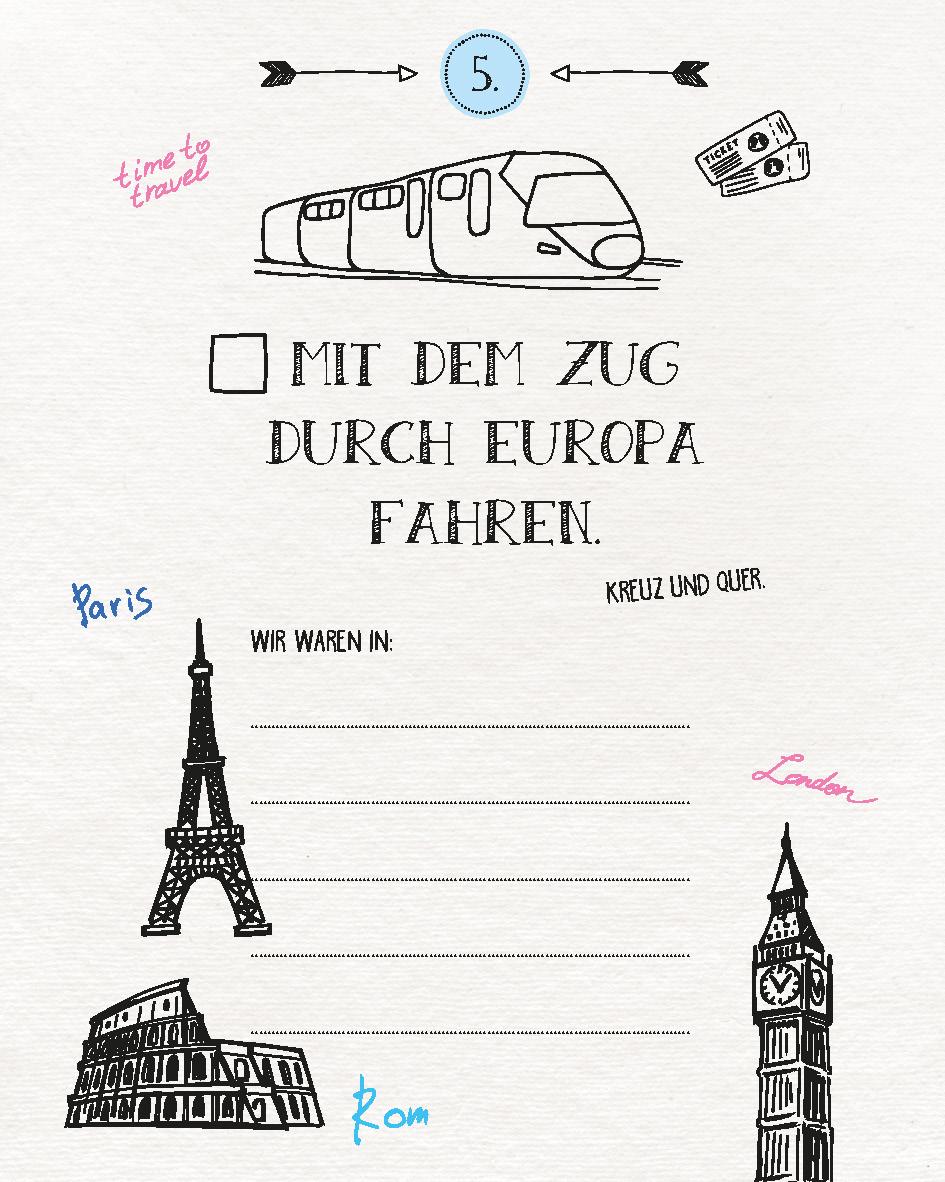 5.
time to
travel
TICKET
MIT DEM ZUG
DURCH EUROPA
FAHREN.
KREUZ UND QUER.
Paris
WIR WAREN IN:
London
Rom